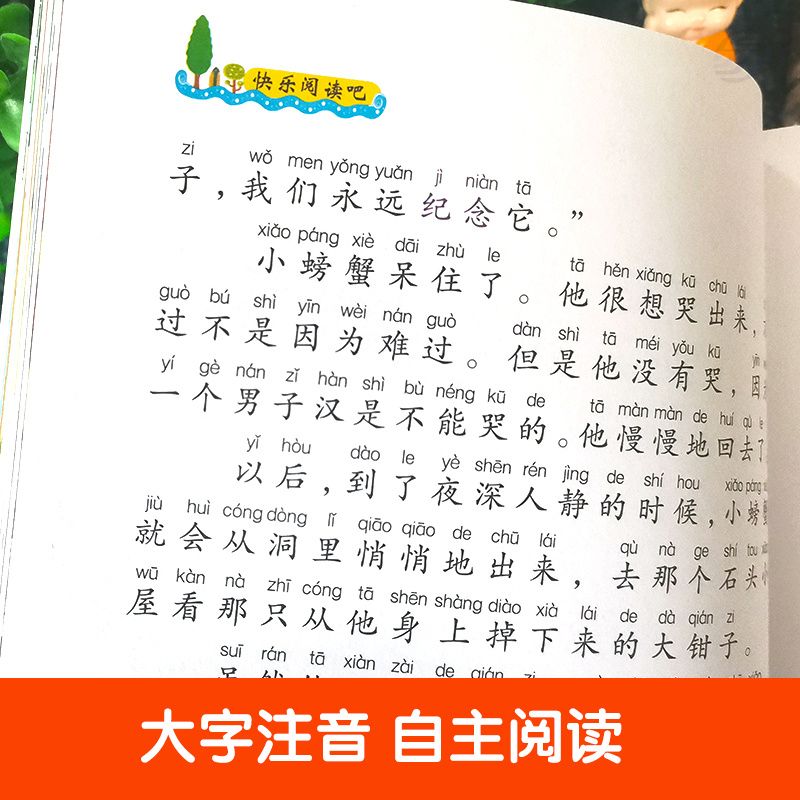 快乐阅读吧
zi wǒ men yǒng yuǎn jì niàn tā
子，我们永远纪念它。”
xiǎo páng xiè dāi zhù le tā hěn xiǎng kū chū lái
小螃蟹呆住了。他很想哭出来，
guò bú shì yīn wèi nán guò dàn shì tā méi yǒu kū yīn
过不是因为难过。但是他没有哭，因
yí gè nán zǐ hàn shì bù néng kū de tā màn màn de huí qù le
一个男子汉是不能哭的。他慢慢地回去了
yǐ hòu dào le yè shēn rén jìng de shí hou xiǎo páng
以后，到了夜深人静的时候，小螃
jiù huì cóng dòng lǐ qiāo qiāo de chū lái qù nà ge shí tou
就会从洞里悄悄地出来，去那个石头
wū kàn nà zhī cóng tā shēn shàng diào xià lái de dà qián zi
屋看那只从他身上掉下来的大钳子。
suī rán tā xiàn zài de qián zi
大字注音 自主阅读